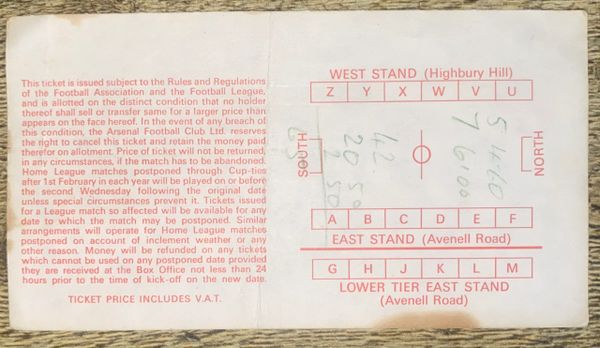 This ticket is issued subject to the Rules and Regulations
of the Football Association and the Football League,
and is allotted on the distinct condition that no holder
thereof shall sell or transfer same for a larger price than
appears on the face hereof. In the event of any breach of
this condition, the Arsenal Football Club Ltd. reserves
the right to cancel this ticket and retain the money paid
therefor on allotment. Price of ticket will not be returned,
in any circumstances, if the match has to be abandoned.
Home League matches postponed through Cup-ties
after 1st February in each year will be played on or before
the second Wednesday following the original date
unless special circumstances prevent it. Tickets issued
for a League match so affected will be available for any
date to which the match may be postponed. Similar
arrangements will operate for Home League matches
postponed on account of inclement weather or any
other reason. Money will be refunded on any tickets
which cannot be used on any postponed date provided
they are received at the Box Office not less than 24
hours prior to the time of kick-off on the new date.
TICKET PRICE INCLUDES V.A.T.
WEST STAND (Highbury Hill)
Z Y X W V U
SOUTH
NORTH
42
20 50
2 50
A B C D E F
EAST STAND (Avenell Road)
G H J K L M
LOWER TIER EAST STAND
(Avenell Road)